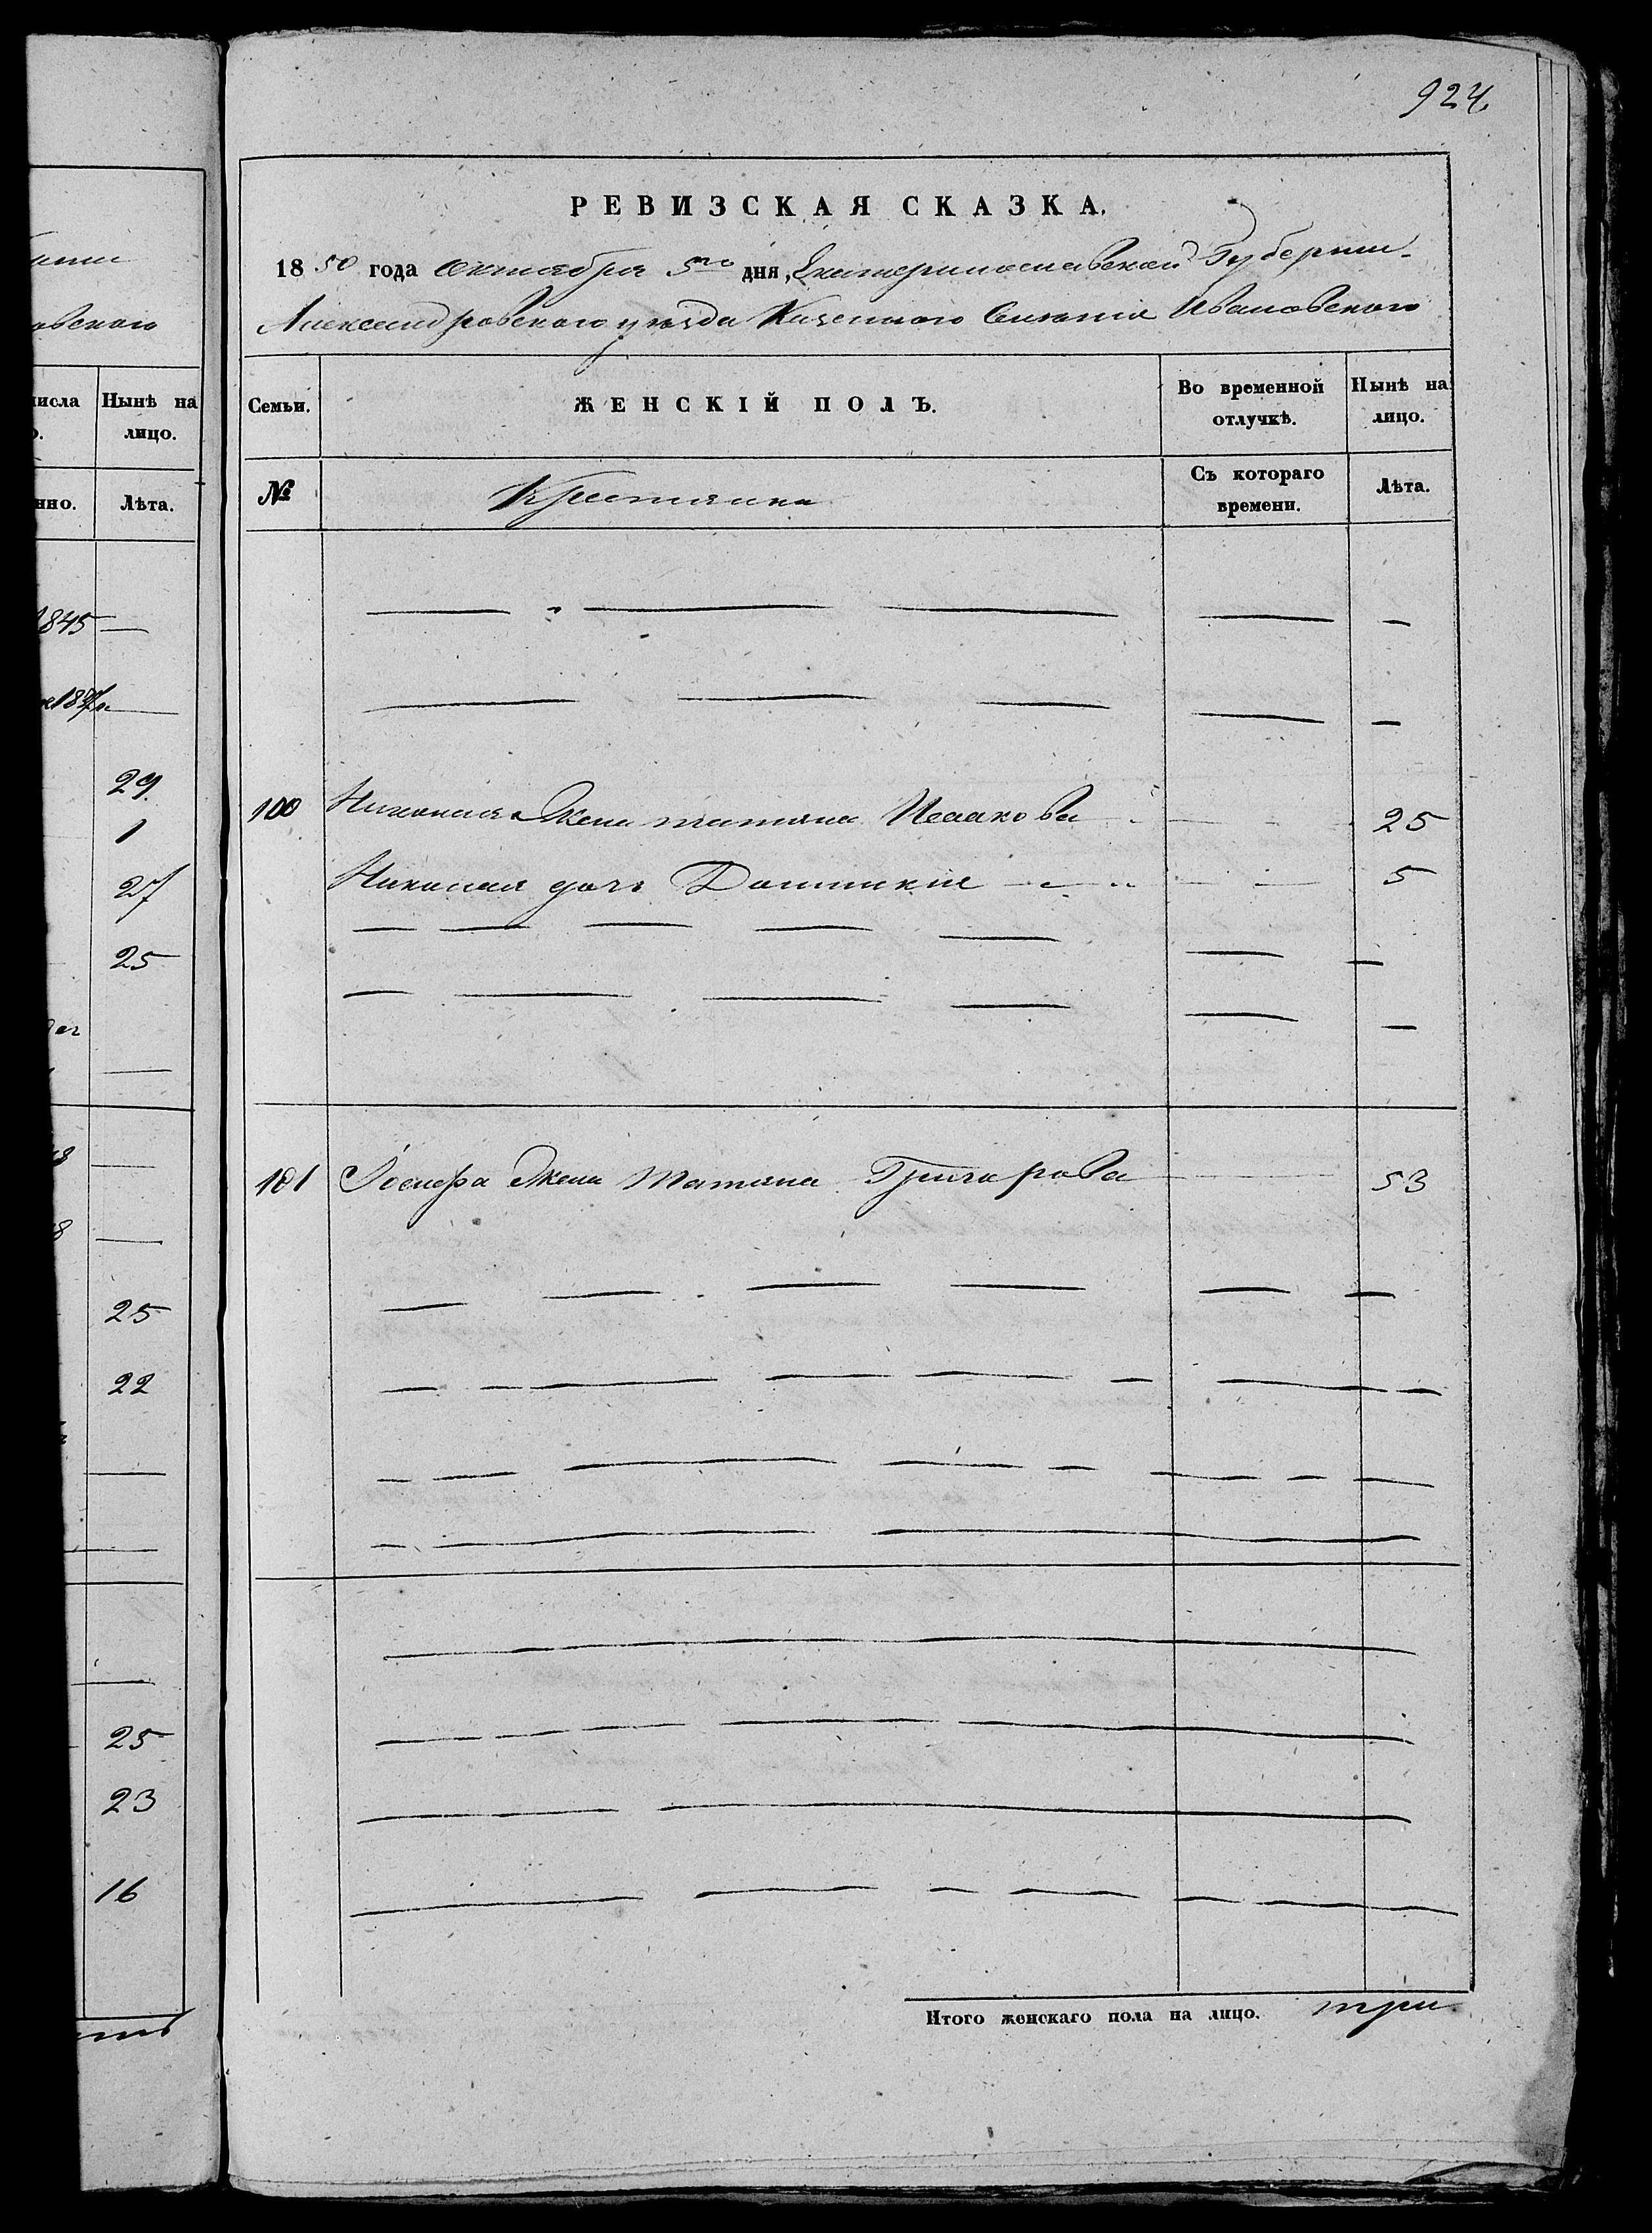 924
РЕВИЗСКАЯ СКАЗКА.
1850 года Октября 5го дня, Екатеринославской Губернии
Александровского уезда Казенного Селения Ивановского
Семьи. ЖЕНСКІЙ ПОЛЪ. Во временной отлучкѣ. Нынѣ на лицо.
№ Крестяне Съ котораго времени. Лѣта.
100 Николая Жена татяна Исакова 25
Николая дочь Домникія 5
101 Іосифа Жена Татяна Григорова 53
Итого женскаго пола на лицо. три
числа Нынѣ на лицо.
Лѣта.
1845
29
1
27
25
25
22
25
23
16